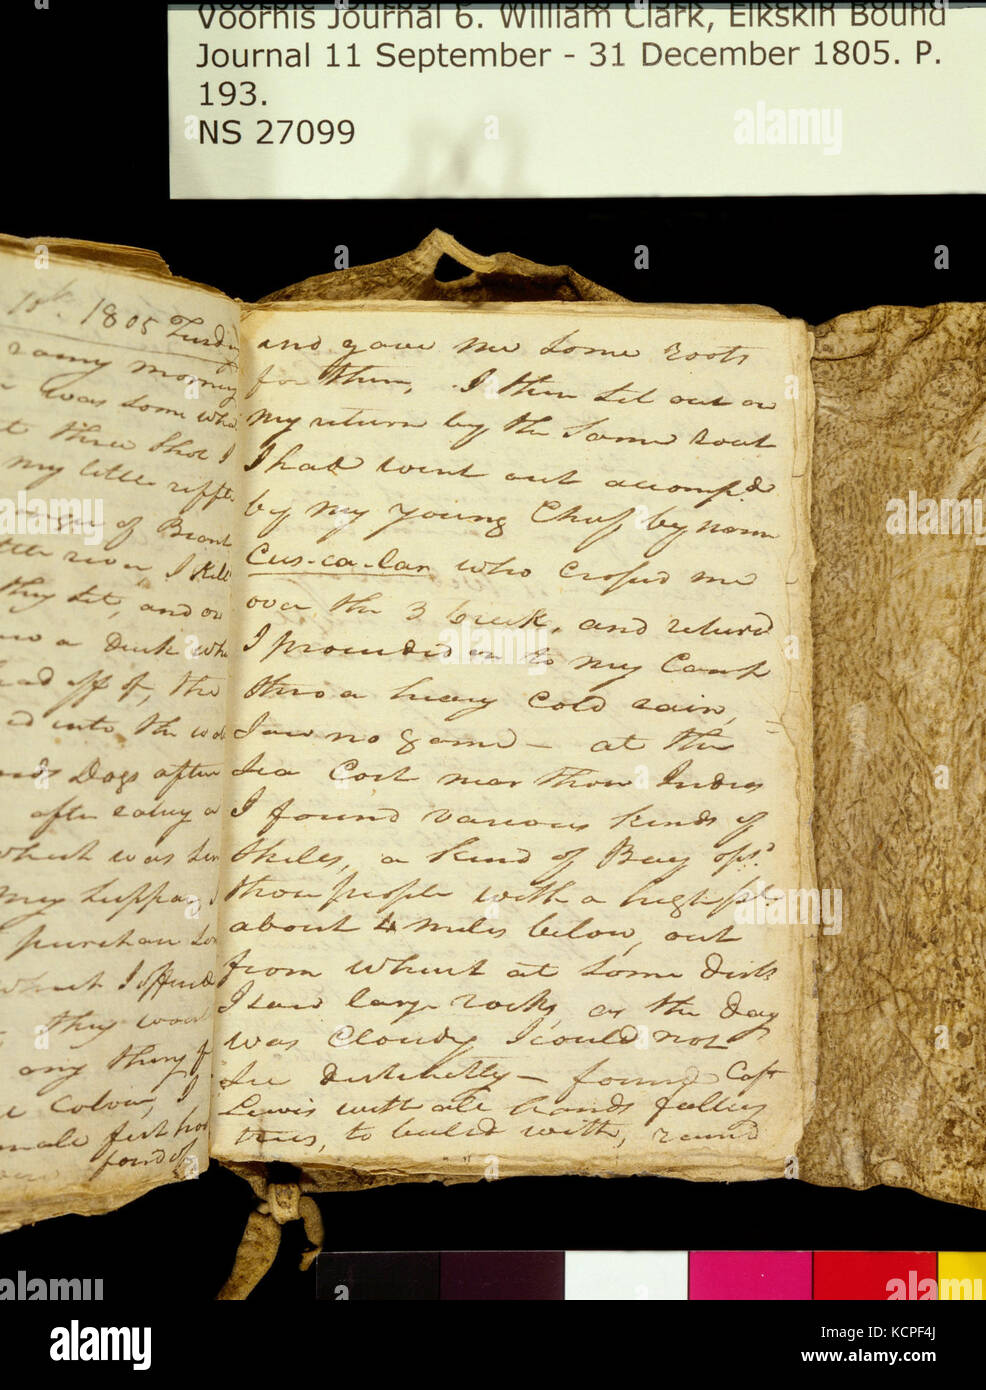 Voorhis Journal 6. William Clark, Elkskin Bound
Journal 11 September - 31 December 1805. P.
193.
NS 27099
10th. 1805 Tuesday
rainy morning
was some what
three Shot I
my little riffle
of Brant
little river, I kill
they Set, and on
a Duck who
head off of, the
into the
Dogs after
after eateing a
which was
my Supper,
purchase
which I offered
they woul
any thing
Colour, I
found of
and gave me Some roots
for them, I then Set out on
my return by the Same rout
I had went out accompd.
by my young Chief by name
Cus-ca-lar who Crossed me
over the 3 Creek, and returd
I proceeded on to my Camp
thro a heavy Cold rain,
Saw no game — at the
Sea Cost near Those Indins
I found various kinds of
Shels, a kind of Bay opsd.
those people with a high pt.
about 4 miles below, out
from which at Some dists
I Saw large rocks, as the day
was Cloudy I could not
See distinctly — found Capt
Lewis with all hands felley
trees, to build with, rained
alamy
alamy
Image ID: KCPF4J
www.alamy.com